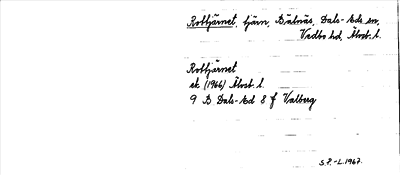 Rottjärnet, tjärn, Bälnäs, Dals-Eds sn,
Vedbo hd, Älvsb. l.
Rottjärnet
ek (1966) Älvsb. l.
9 B Dals-Ed 8 f Valberg
S.F.-L. 1967.